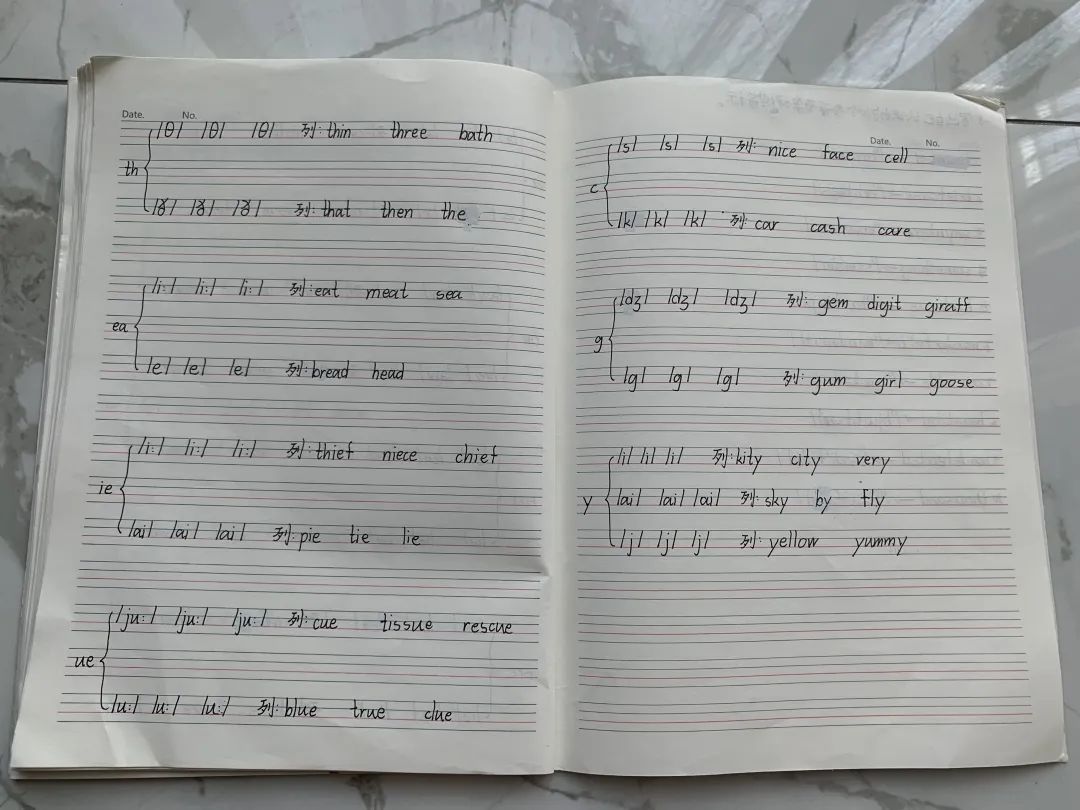 Date. No.
/θ/ /θ/ /θ/ 列: thin three bath
th
/ð/ /ð/ /ð/ 列: that then the
/i:/ /i:/ /i:/ 列: eat meat sea
ea
/e/ /e/ /e/ 列: bread head
/i:/ /i:/ /i:/ 列: thief niece chief
ie
/ai/ /ai/ /ai/ 列: pie tie lie
/ju:/ /ju:/ /ju:/ 列: cue tissue rescue
ue
/u:/ /u:/ /u:/ 列: blue true clue
Date. No.
/s/ /s/ /s/ 列: nice face cell
c
/k/ /k/ /k/ 列: car cash care
/dʒ/ /dʒ/ /dʒ/ 列: gem digit giraff
g
/g/ /g/ /g/ 列: gum girl goose
/i/ /i/ /i/ 列: kity city very
y
/ai/ /ai/ /ai/ 列: sky by fly
/j/ /j/ /j/ 列: yellow yummy